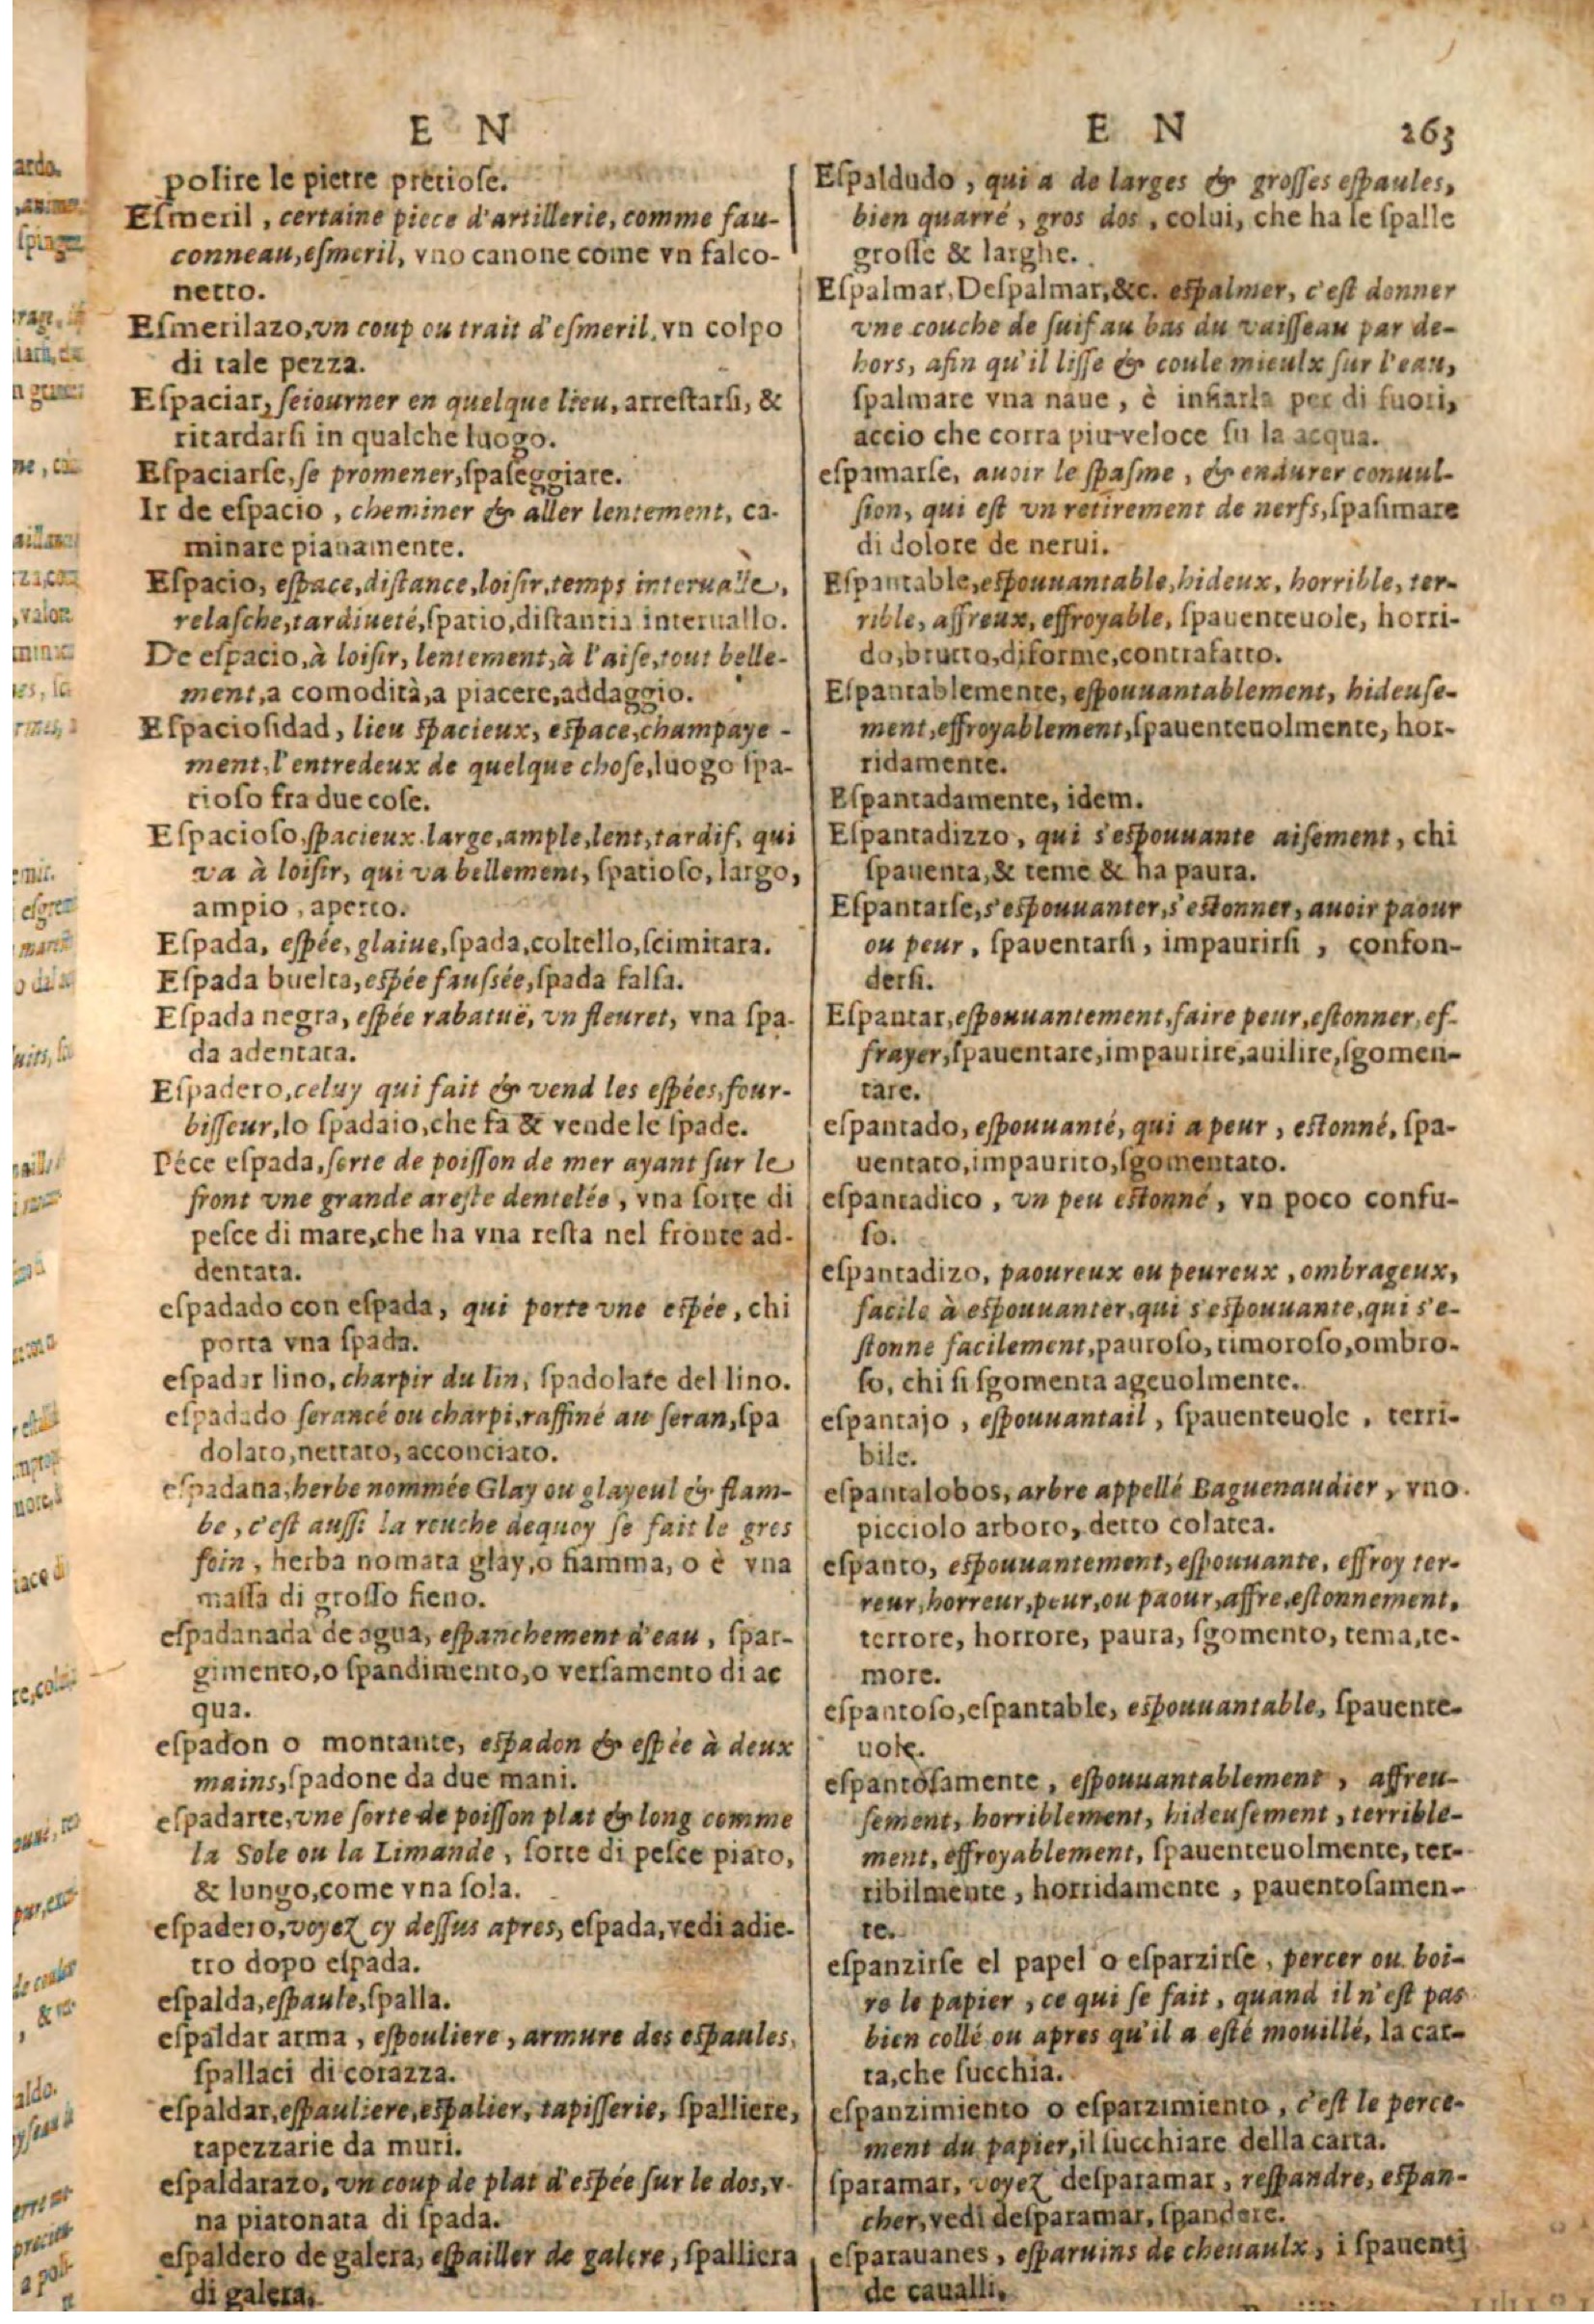 E N
polire le pietre pretiose.
Esmeril, certaine piece d'artillerie, comme fau-
conneau, esmeril, vno canone come vn falco-
netto.
Esmerilazo, vn coup ou trait d'esmeril, vn colpo
di tale pezza.
Espaciar, seiourner en quelque lieu, arrestarsi, &
ritardarsi in qualche luogo.
Espaciarse, se promener, spaseggiare.
Ir de espacio, cheminer & aller lentement, ca-
minare pianamente.
Espacio, espace, distance, loisir, temps interualle,
relasche, tardiueté, spatio, distantia interuallo.
De espacio, à loisir, lentement, à l'aise, tout belle-
ment, a comodità, a piacere, addaggio.
Espaciosidad, lieu spacieux, espace, champaye-
ment, l'entredeux de quelque chose, luogo spa-
tioso fra due cose.
Espacioso, spacieux. large, ample, lent, tardif, qui
va à loisir, qui va bellement, spatioso, largo,
ampio, aperto.
Espada, espée, glaiue, spada, coltello, scimitara.
Espada buelta, espée faussée, spada falsa.
Espada negra, espée rabatuë, vn fleuret, vna spa-
da adentata.
Espadero, celuy qui fait & vend les espées, four-
bisseur, lo spadaio, che fa & vende le spade.
Péce espada, sorte de poisson de mer ayant sur le
front vne grande areste dentelée, vna sorte di
pesce di mare, che ha vna resta nel fronte ad-
dentata.
espadado con espada, qui porte vne espée, chi
porta vna spada.
espadar lino, charpir du lin, spadolate del lino.
espadado serancé ou charpi, raffiné au seran, spa
dolato, nettato, acconciato.
espadana, herbe nommée Glay ou glayeul & flam-
be, c'est aussi la rouche dequoy se fait le gros
foin, herba nomata glay, o fiamma, o è vna
massa di grosso fieno.
espadanada de agua, espanchement d'eau, spar-
gimento, o spandimento, o versamento di ac
qua.
espadon o montante, espadon & espée à deux
mains, spadone da due mani.
espadarte, vne sorte de poisson plat & long comme
la Sole ou la Limande, sorte di pesce piato,
& lungo, come vna sola.
espadero, voyez cy dessus apres, espada, vedi adie-
tro dopo espada.
espalda, espaule, spalla.
espaldar arma, espouliere, armure des espaules,
spallaci di corazza.
espaldar, espauliere, espalier, tapisserie, spalliere,
tapezzarie da muri.
espaldarazo, vn coup de plat d'espée sur le dos, v-
na piatonata di spada.
espaldero de galera, espailler de galere, spalliera
di galera.
E N 263
Espaldudo, qui a de larges & grosses espaules,
bien quarré, gros dos, colui, che ha le spalle
grosse & larghe.
Espalmar, Despalmar, &c. espalmer, c'est donner
vne couche de suif au bas du vaisseau par de-
hors, afin qu'il lisse & coule mieulx sur l'eau,
spalmare vna naue, è insiarla per di fuori,
accio che corra piu veloce su la acqua.
espamarse, auoir le spasme, & endurer conuul-
sion, qui est vn retirement de nerfs, spasimare
di dolore de nerui.
Espantable, espouuantable, hideux, horrible, ter-
rible, affreux, effroyable, spauenteuole, horri-
do, brutto, diforme, contrafatto.
Espantablemente, espouuantablement, hideuse-
ment, effroyablement, spauenteuolmente, hor-
ridamente.
Espantadamente, idem.
Espantadizzo, qui s'espouuante aisement, chi
spauenta, & teme & ha paura.
Espantarse, s'espouuanter, s'estonner, auoir paour
ou peur, spaventarsi, impaurirsi, confon-
dersi.
Espantar, espouuantement, faire peur, estonner, ef-
frayer, spauentare, impaurire, auilire, sgomen-
tare.
espantado, espouuanté, qui a peur, estonné, spa-
uentato, impaurito, sgomentato.
espantadico, vn peu estonné, vn poco confu-
so.
espantadizo, paoureux ou peureux, ombrageux,
facile à espouuanter, qui s'espouuante, qui s'e-
stonne facilement, pauroso, timoroso, ombro-
so, chi si sgomenta ageuolmente.
espantajo, espouuantail, spauenteuole, terri-
bile.
espantalobos, arbre appellé Baguenaudier, vno
picciolo arboro, detto colatea.
espanto, espouuantement, espouuante, effroy ter-
reur, horreur, peur, ou paour, affre, estonnement,
terrore, horrore, paura, sgomento, tema, te-
more.
espantoso, espantable, espouuantable, spauente-
uole.
espantosamente, espouuantablement, affreu-
sement, horriblement, hideusement, terrible-
ment, effroyablement, spauenteuolmente, ter-
ribilmente, horridamente, pauentosamen-
te.
espanzirse el papel o esparzirse, percer ou boi-
re le papier, ce qui se fait, quand il n'est pas
bien collé ou apres qu'il a esté mouillé, la car-
ta, che succhia.
espanzimiento o esparzimiento, c'est le perce-
ment du papier, il succhiare della carta.
sparamar, voyez desparamar, respandre, espan-
cher, vedi desparamar, spandere.
esparauanes, esparuins de cheuaulx, i spauentj
de caualli.